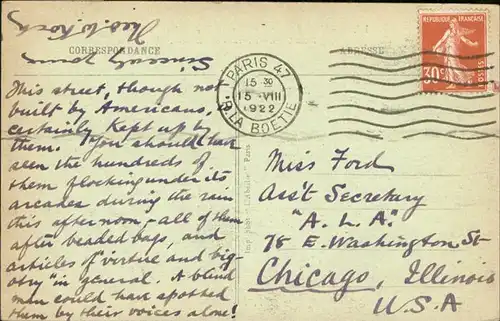 CORRESPONDANCE
ADRESSE
REPUBLIQUE FRANÇAISE
30c
POSTES
PARIS 47
15 30
15 · VIII
1922
R. LA BOETIE
This street, though not
built by Americans,
certainly kept up by
them. You should have
seen the hundreds of
them flocking under its
arcades during the rain
this afternoon - all of them
after beaded bags, and
articles of virtue and big-
otry in general. A blind
man could have spotted
them by their voices alone!
Sincerely yours
Theo. W. Koch
Miss Ford
Ass't Secretary
"A. L. A."
78 E. Washington St
Chicago, Illinois
U.S.A